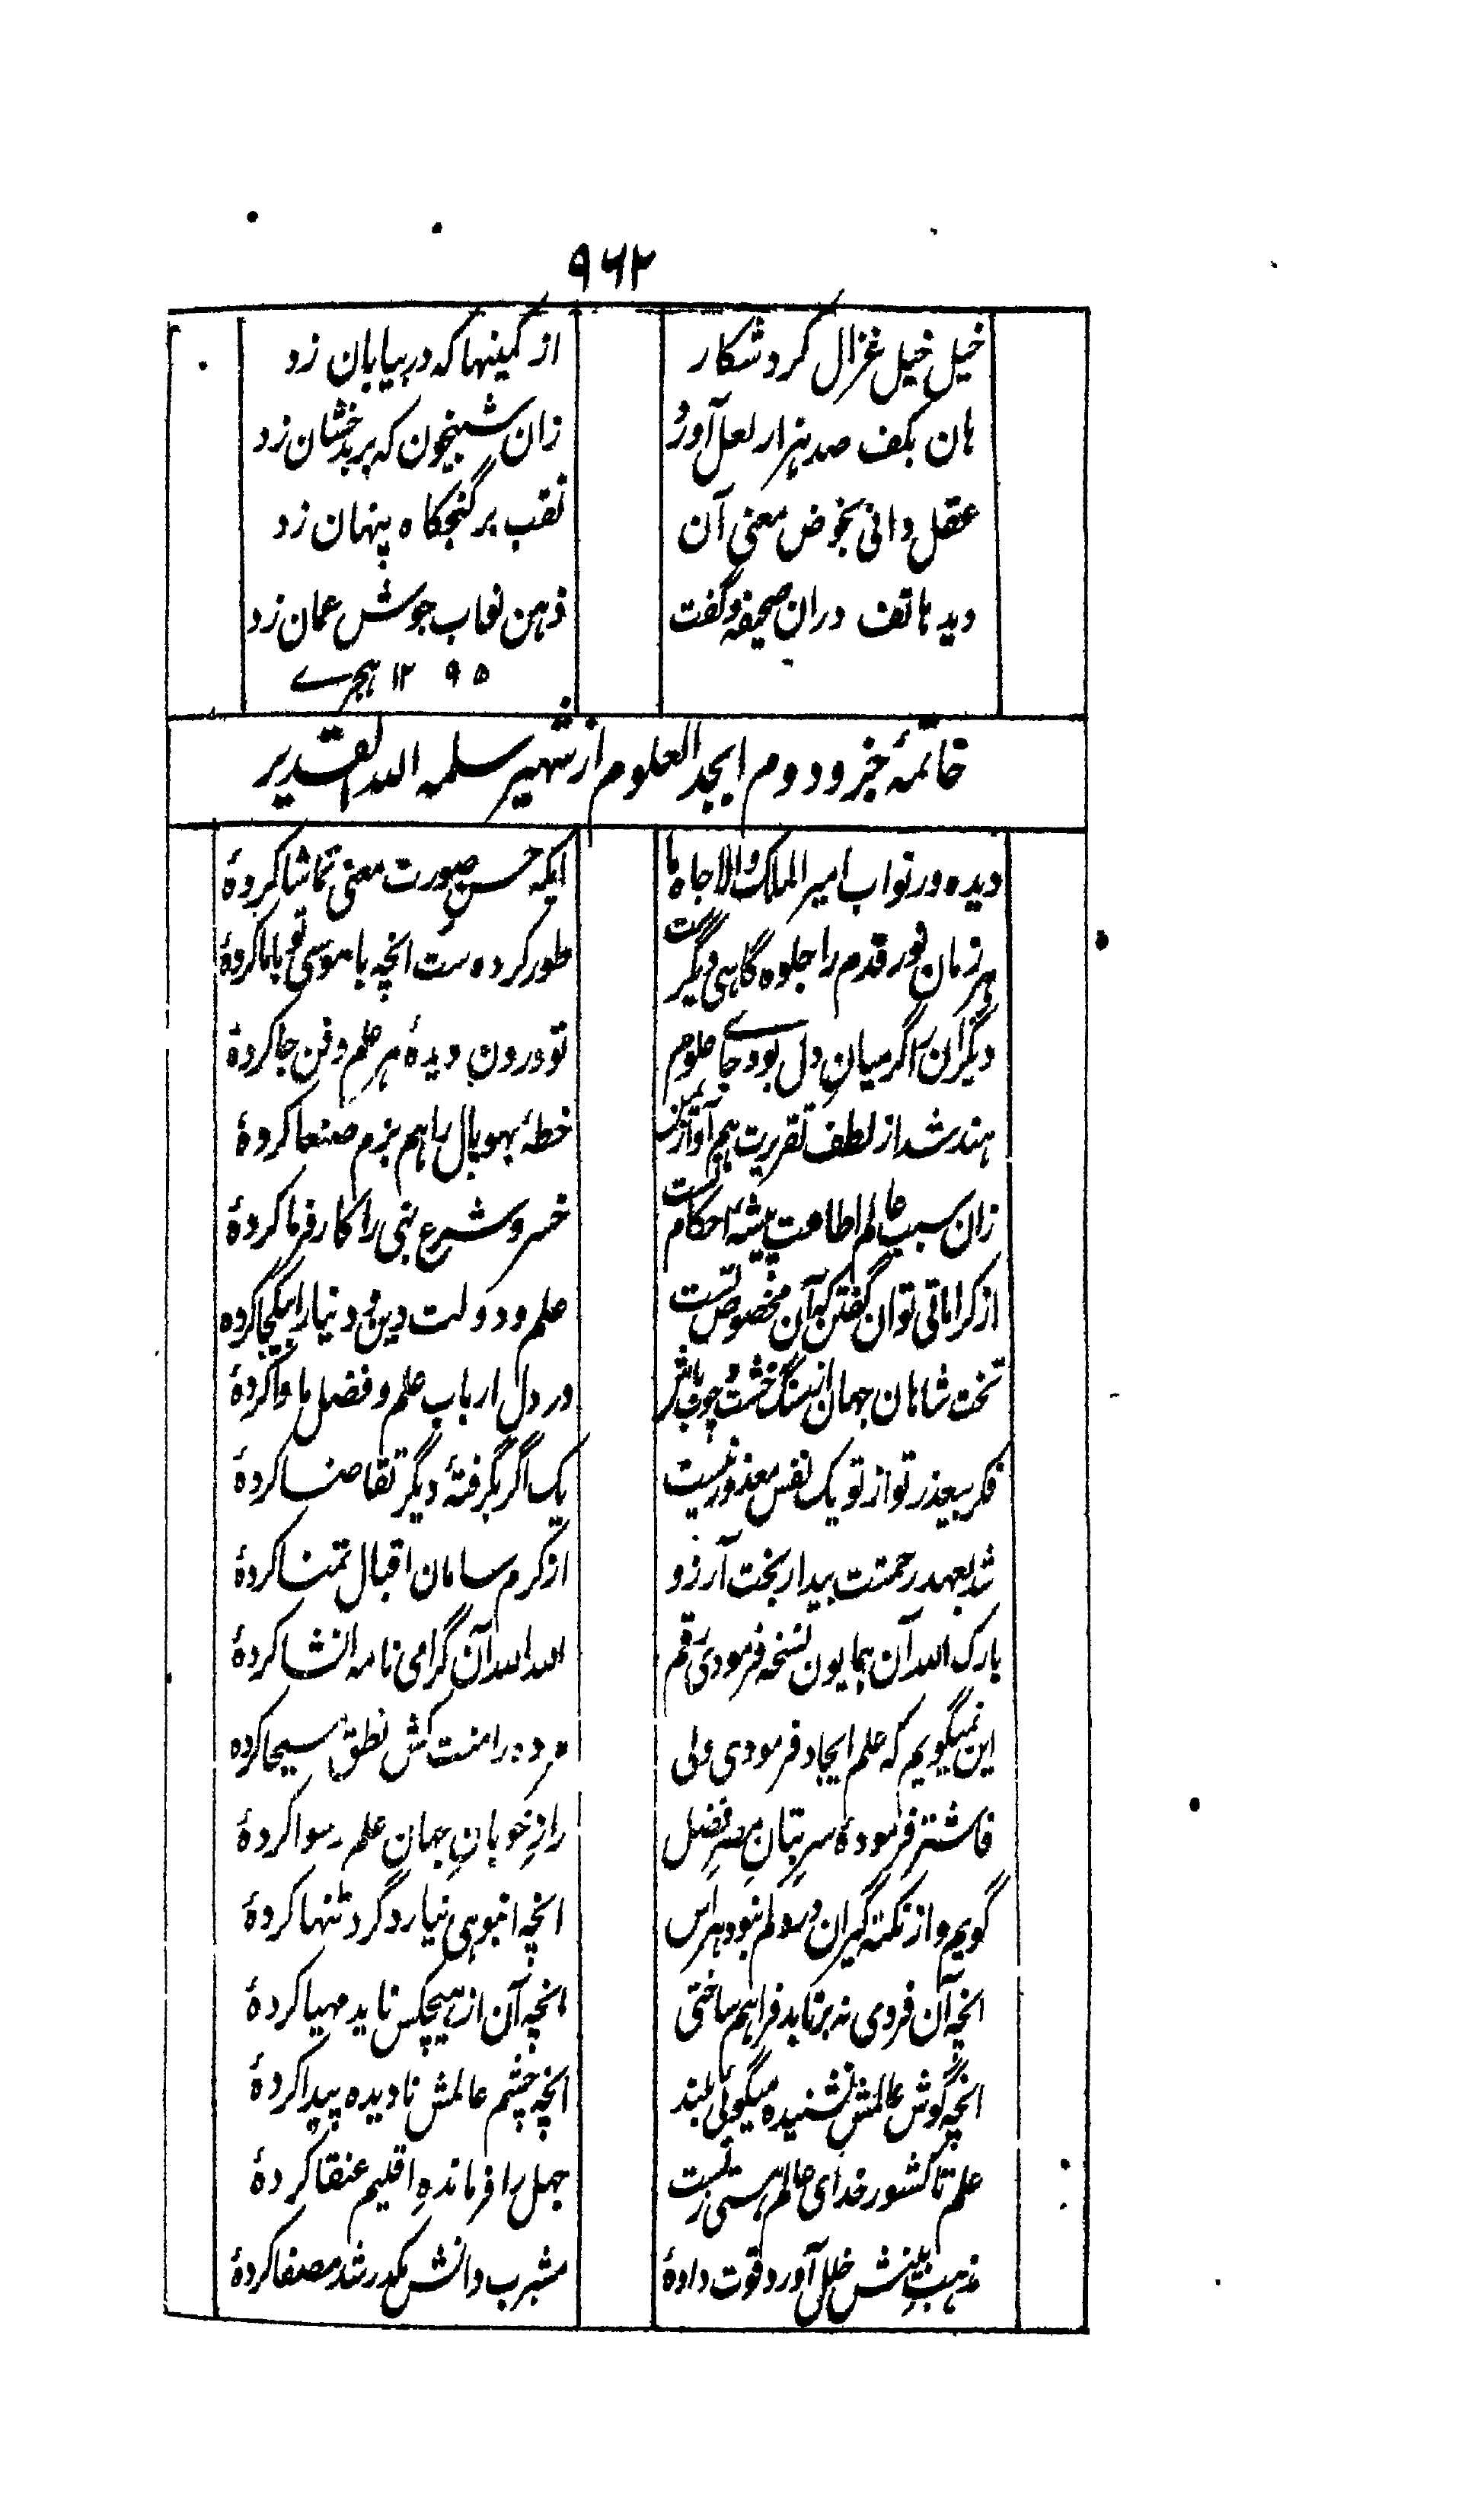 ۹۶۲
خیل خیل غزال کرد شکار از کمینها که در بیابان زد
هان بکف صد هزار لعل آورد زان شبیخون که بر بدخشان زد
عقل دانی بخوض معنی آن نقب بر گنجگاه پنهان زد
دید هاتف دران صحیفه و گفت ذهن نواب جوش عمان زد
۱۲۹۵ هجرے
خاتمۂ جزو دوم ابجد العلوم از شهیر سلمه الله القدیر
دیده ور نواب امیر الملک والا جاه ما ایکه حسن صورت معنی تماشا کردۂ
هر زمان نور قدم را جلوه گاهی دیگرست طور کرده ست انچه با موسی تو با ما کردۂ
دیگران را گر میان دل بودے جای علوم تو درون دیدۂ هر علم و فن جا کردۂ
هند شد از لطف تقریرت هم آواز یمن خطۂ بهوپال را هم بزم صنعا کردۂ
زان سبب عالم اطاعت پیشۂ احکام تست خسرو شرع نبی را کار فرما کردۂ
از کراماتی توان گفتن که آن مخصوص تست علم و دولت دین و دنیا را بیکجا کرده
تخت شاهان جهان از سنگ و خشت و چوب باشد در دل ارباب علم و فضل ماوا کردۂ
فکر بیعذر تو از تو یک نفس معذور نیست یک اگر بگرفتۂ دیگر تقاضا کردۂ
شد بعهد رحمتت بیدار بخت آرزو از کرم سامان اقبال تمنا کردۂ
بارک الله آن همایون نسخه فرمودی رقم الله الله آن گرامی نامه انشا کردۂ
این نمیگویم که علم ایجاد فرمودی ولی مرده را منت کش نطق مسیحا کرده
فاشتر فرمودۂ سر بتان مصر فضل راز خوبان جهان علم رسوا کردۂ
گویم و از نکته گیران در دلم نبود هراس انچه انبوهی نیارد گرد تنها کردۂ
انچه آن فردی نه برتابد فراهم ساختی انچه آن از هیچکس ناید مهیا کردۂ
انچه گوش عالمش نشنیده میگویی بلند انچه چشم عالمش نادیده پیدا کردۂ
علم تا کشور خدای عالم هستی زتست جهل را فرمانده اقلیم عنقا کردۂ
مذهب بینش خلل آورد قوت دادۂ مشرب دانش مکدر شد مصفا کردۂ